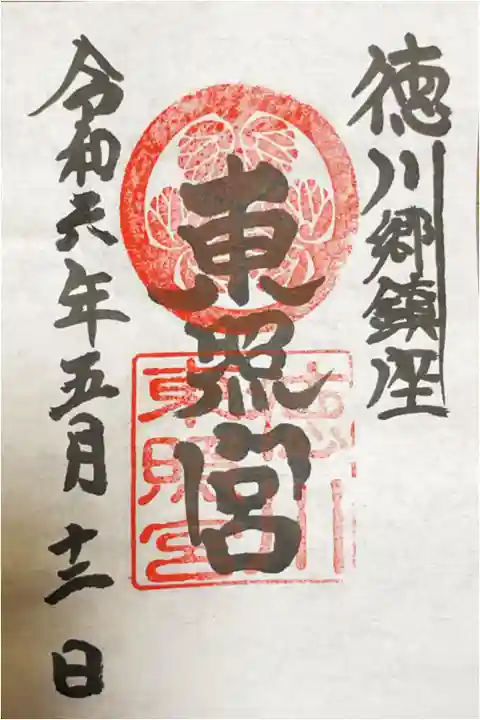 徳川郷鎮座
東照宮
令和元年五月十二日
徳川
東照宮